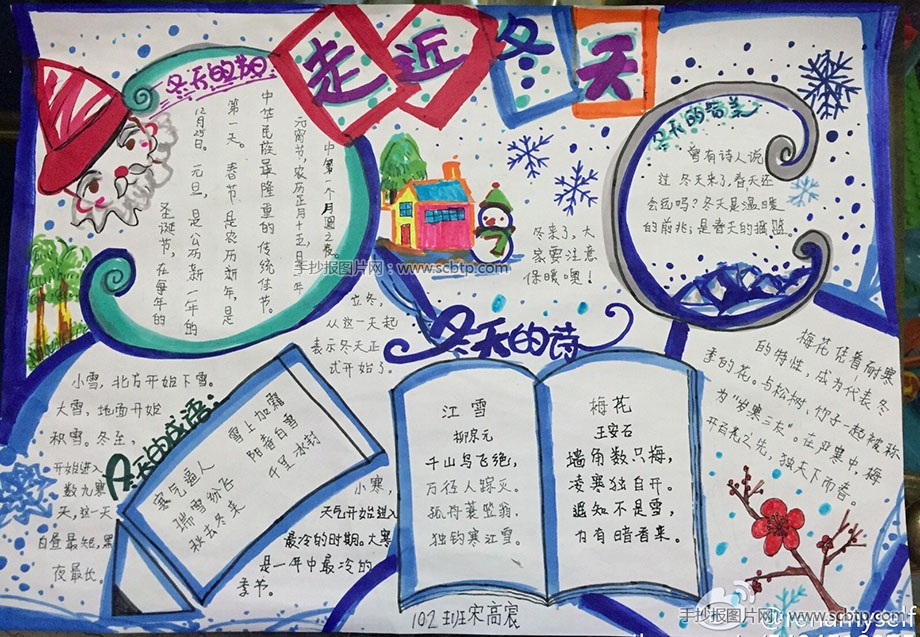 走近冬天
冬天的节日
中第一个月圆之夜
元宵节,农历正月十五,是一年
中华民族最隆重的传统佳节。
第一天。春节是农历新年,是
12月25日。元旦,是公历新一年的
圣诞节,在每年的
手抄报图片网:www.scbtp.com
冬来了,大
家要注意
保暖噢!
冬天的赞美
曾有诗人说
过冬天来了,春天还
会远吗?冬天是温暖
的前兆;是春天的摇篮。
立冬,
从这一天起
表示冬天正
式开始了。
小雪,北方开始下雪。
大雪,地面开始
积雪。冬至,
开始进入
数九寒
天,这一天
白昼最短,黑
夜最长。
小寒,
天气开始进入
最冷的时期。大寒
是一年中最冷的
季节。
冬天的成语:
寒气逼人
瑞雪纷飞
秋去冬来
雪上加霜
阳春白雪
千里冰封
冬天的诗
江雪
柳宗元
千山鸟飞绝,
万径人踪灭。
孤舟蓑笠翁,
独钓寒江雪。
梅花
王安石
墙角数只梅,
凌寒独自开。
遥知不是雪,
为有暗香来。
梅花凭着耐寒
的特性,成为代表冬
季的花。与松树、竹子一起被称
为“岁寒三友”。在严寒中,梅
开百花之先,独天下而春。
102班宋高宸
手抄报图片网:www.scbtp.com